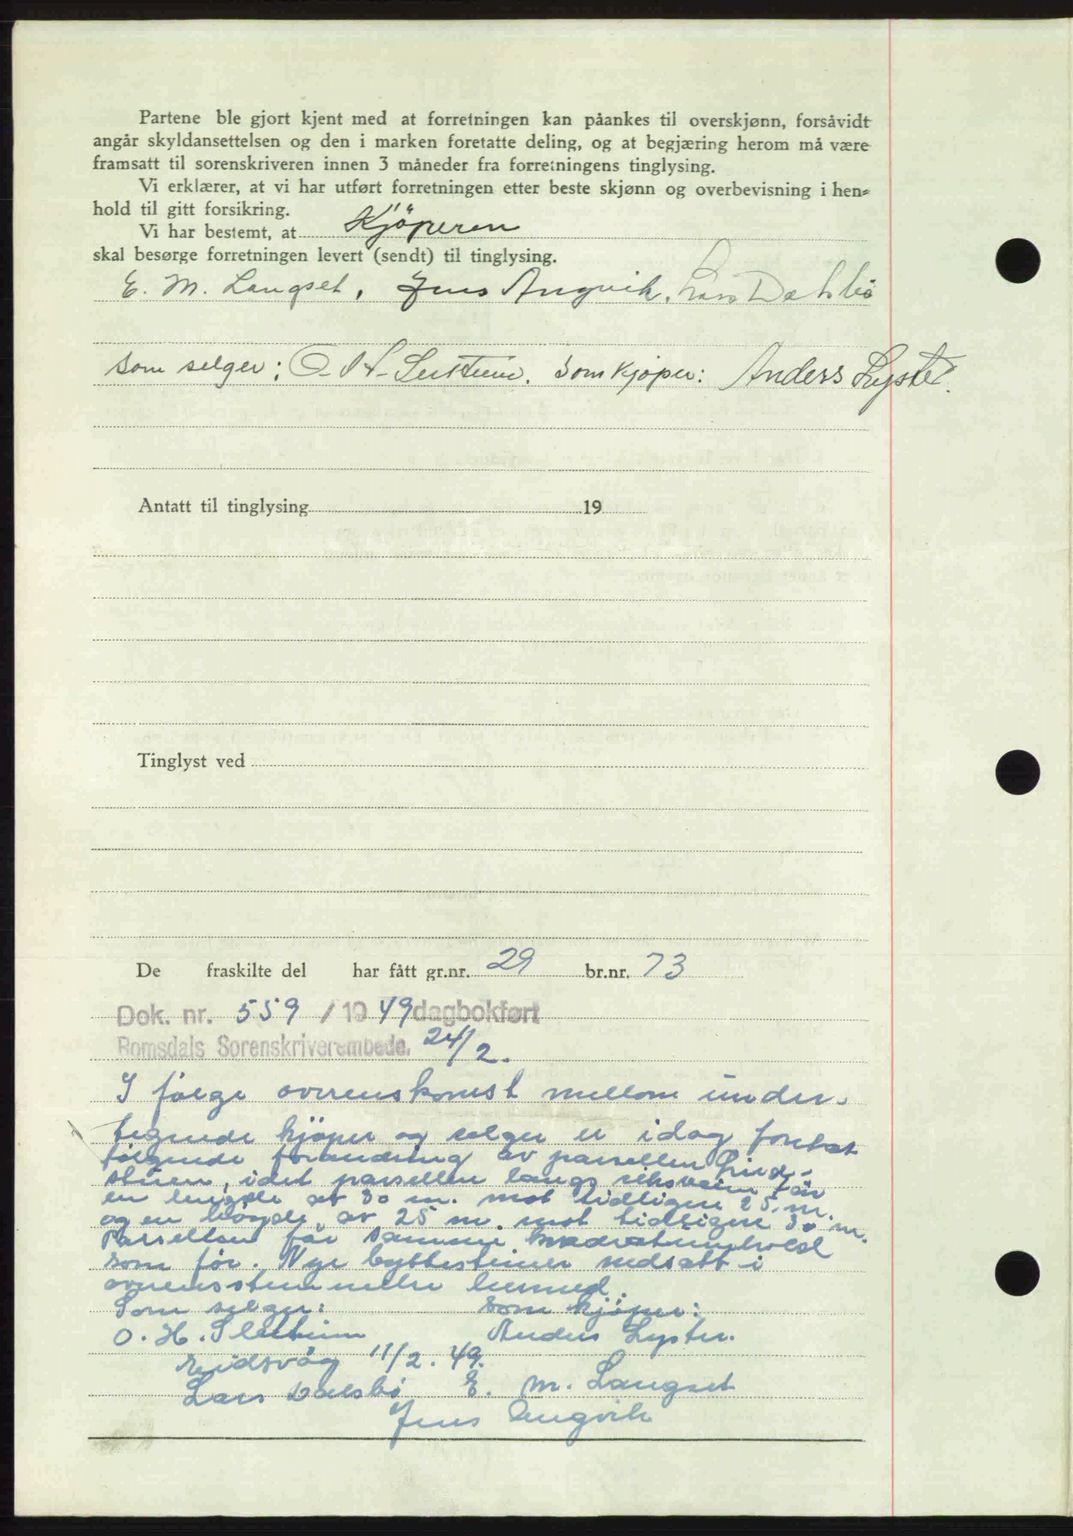 Partene ble gjort kjent med at forretningen kan påankes til overskjønn, forsåvidt
angår skyldansettelsen og den i marken foretatte deling, og at begjæring herom må være
framsatt til sorenskriveren innen 3 måneder fra forretningens tinglysing.
Vi erklærer, at vi har utført forretningen etter beste skjønn og overbevisning i hen-
hold til gitt forsikring.
Vi har bestemt, at Kjöperen
skal besørge forretningen levert (sendt) til tinglysing.
E. M. Langset, Jens Angvik, Lars Dahlbö
Som selger: O. H. Som kjøper: Anders Lyster.
Antatt til tinglysing 19
Tinglyst ved
De fraskilte del har fått gr.nr. 29 br.nr. 73
Dok. nr. 559 / 1949 dagbokført
Romsdals Sorenskriverembede. 24/2.
I følge overenskomst mellom under-
tegnede kjøper og selger er idag foretat
følgende forandring av parsellen
stuen, idet parsellen langs riksveien får
en lengde at 30 m. mot tidligere 25 m.
og en høyde av 25 m. mot tidligere 30 m.
Parsellen får samme kvadratinnhold
som før. Nye byttesteiner nedsatt i
overensstemmelse hermed.
Som selger: Som kjøper:
O. H. Sletteim Anders Lyster.
Eidsvåg 11/2. 49.
Lars Dalsbö E. M. Langset
Jens Angvik